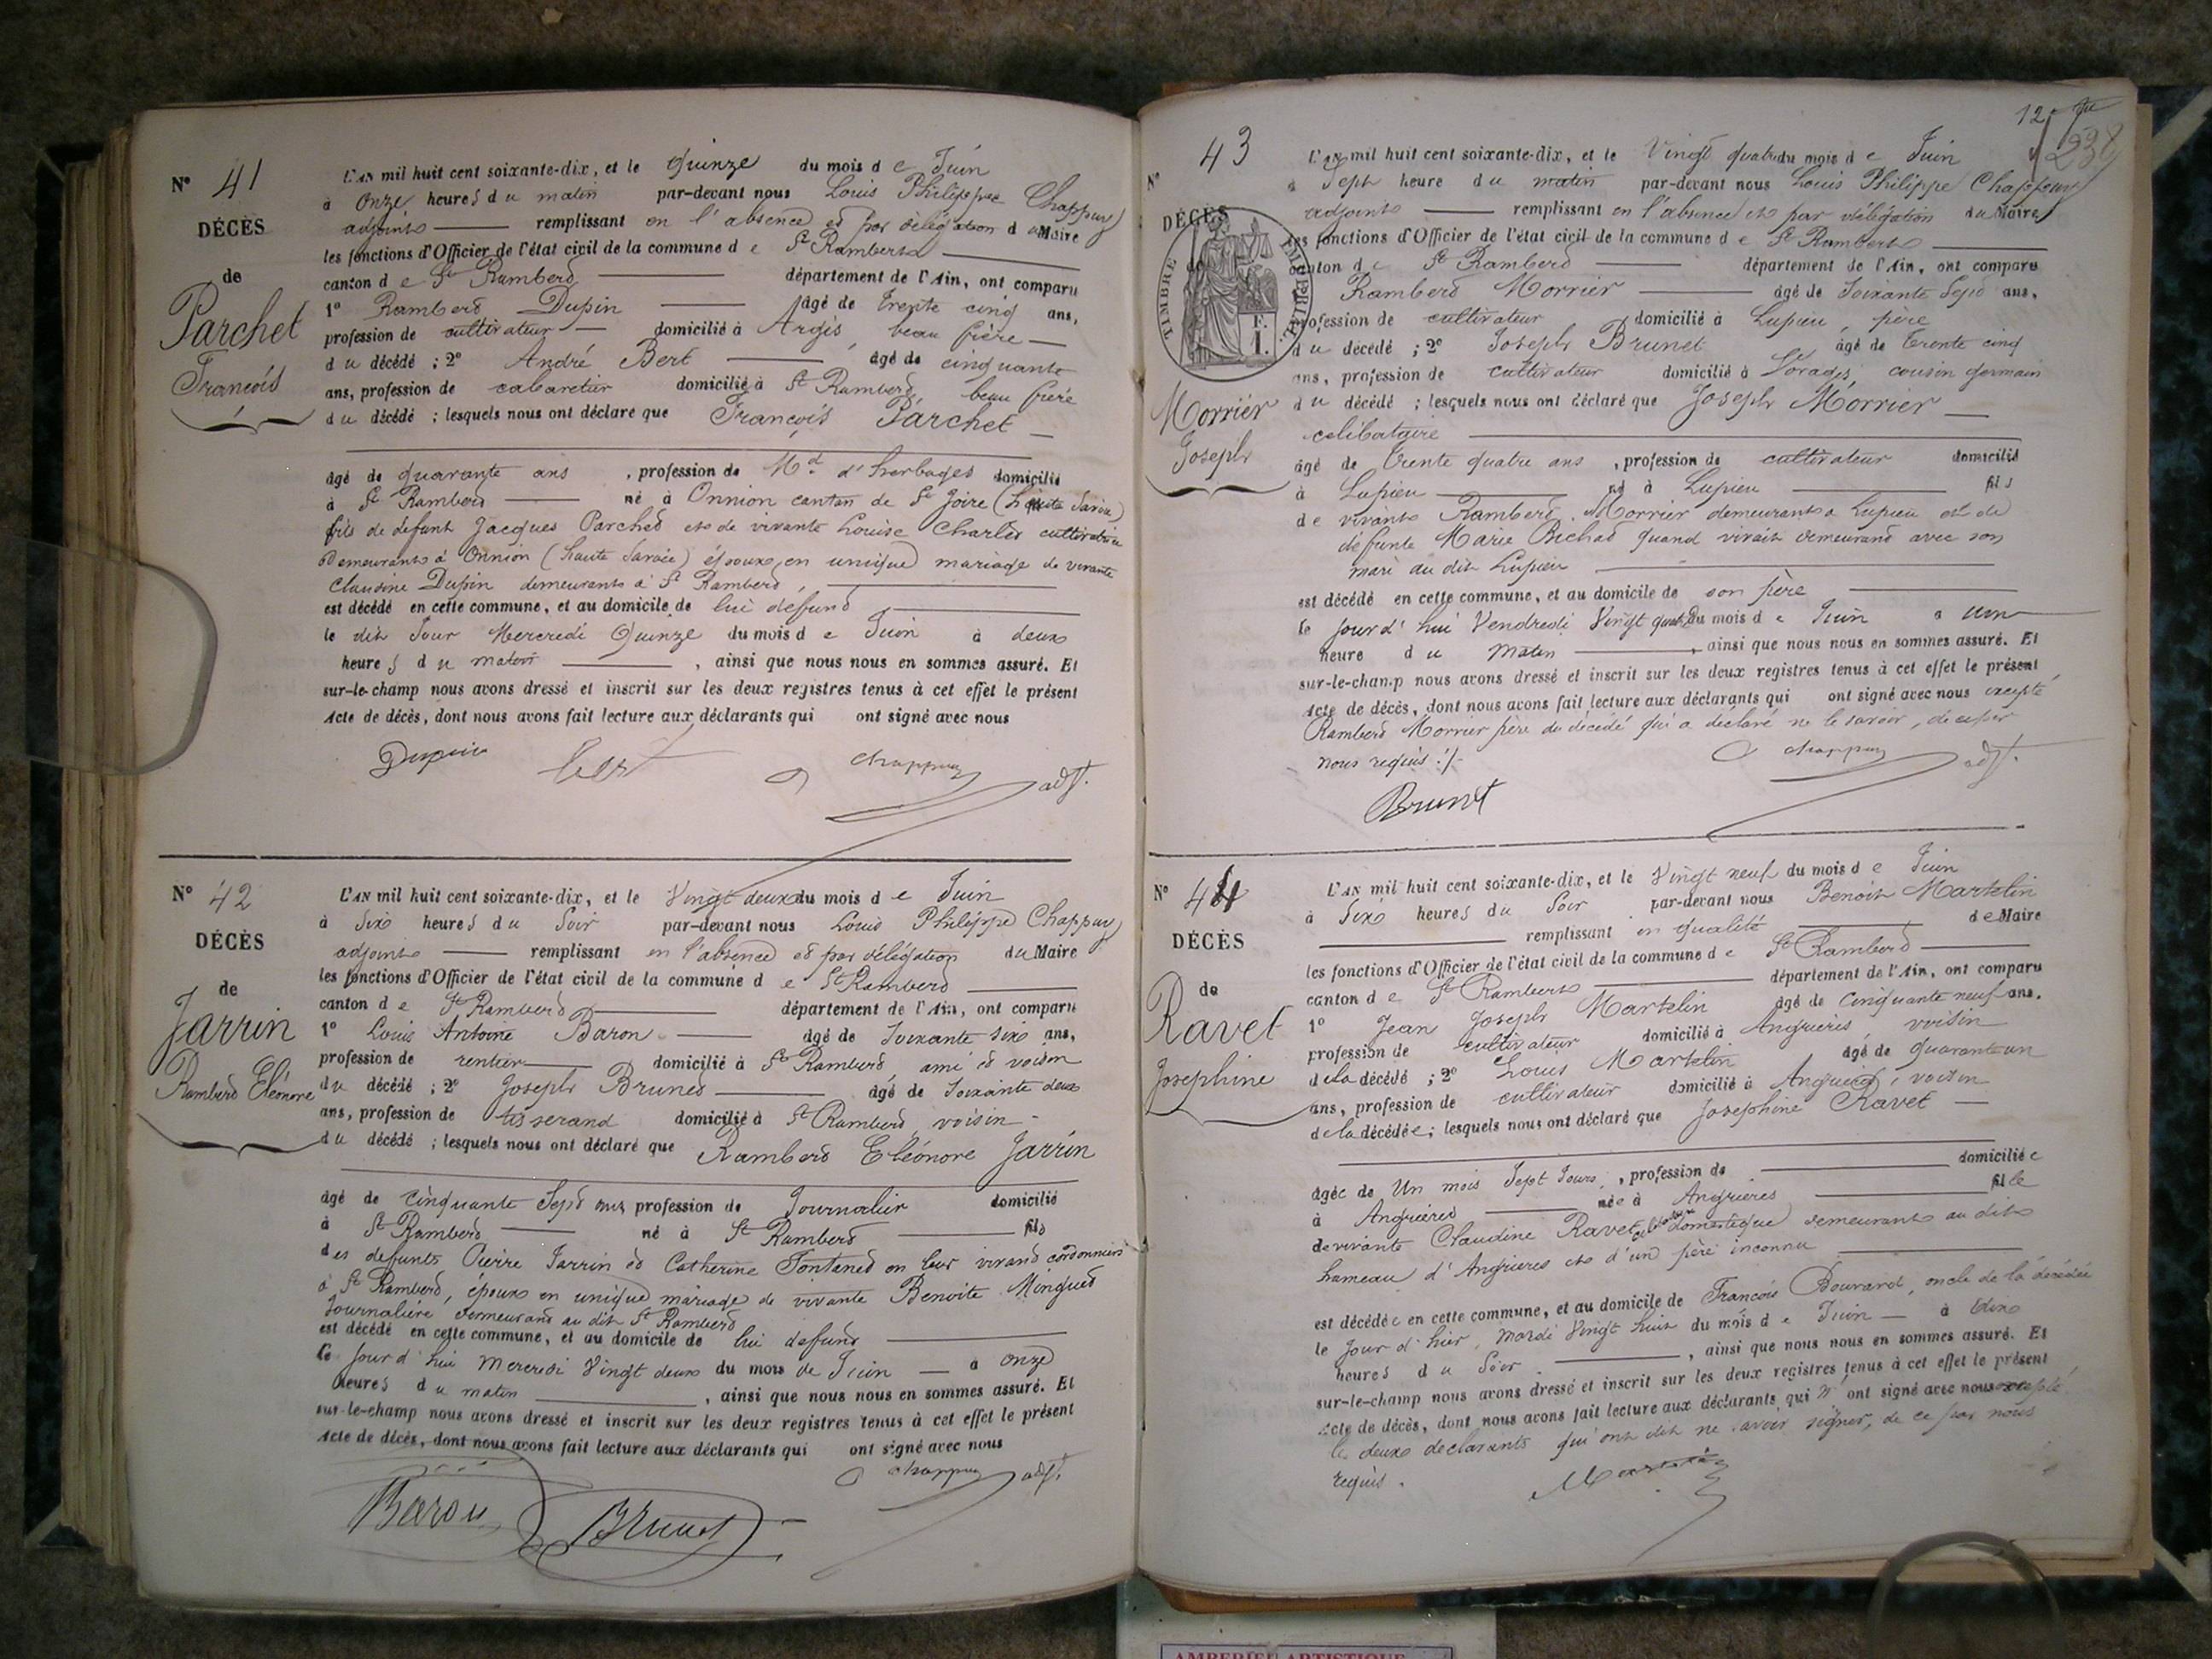 N° 41
DÉCÈS
de
Parchet
François
L'AN mil huit cent soixante-dix, et le Quinze du mois de Juin
à onze heures du matin par-devant nous Louis Philippe Chappuy
adjoint remplissant en l'absence et par délégation du Maire
les fonctions d'Officier de l'état civil de la commune de St Rambert
canton de St Rambert département de l'Ain, ont comparu
1° Rambert Dupin âgé de trente cinq ans,
profession de cultivateur domicilié à Argis, beau frère
du décédé ; 2° André Bert âgé de cinquante
ans, profession de cabaretier domicilié à St Rambert, beau frère
du décédé ; lesquels nous ont déclaré que François Parchet
âgé de quarante ans, profession de Md d'herbages domicilié
à St Rambert né à Onnion canton de St Joire (haute Savoie)
fils de defunt Jacques Parchet et de vivante Louise Charles cultivatrice
demeurant à Onnion (haute Savoie) époux en unique mariage de vivante
Claudine Dupin demeurant à St Rambert,
est décédé en cette commune, et au domicile de lui défunt
le dit Jour Mercredi Quinze du mois de Juin à deux
heures du matin, ainsi que nous nous en sommes assuré. Et
sur-le-champ nous avons dressé et inscrit sur les deux registres tenus à cet effet le présent
Acte de décès, dont nous avons fait lecture aux déclarants qui ont signé avec nous
Dupin Bert Chappuy adjt.
N° 42
DÉCÈS
de
Jarrin
Rambert Eléonore
L'AN mil huit cent soixante-dix, et le Vingt deux du mois de Juin
à Six heures du Soir par-devant nous Louis Philippe Chappuy
adjoint remplissant en l'absence et par délégation du Maire
les fonctions d'Officier de l'état civil de la commune de St Rambert
canton de St Rambert département de l'Ain, ont comparu
1° Louis Antoine Baron âgé de Soixante six ans,
profession de rentier domicilié à St Rambert, ami et voisin
du décédé ; 2° Joseph Brunet âgé de Soixante deux
ans, profession de tisserand domicilié à St Rambert, voisin
du décédé ; lesquels nous ont déclaré que Rambert Eléonore Jarrin
âgé de cinquante Sept ans profession de Journalier domicilié
à St Rambert né à St Rambert fils
des defunts Pierre Jarrin et Catherine Fontanet en leur vivant cordonniers
à St Rambert, époux en unique mariage de vivante Benoite Minguet
Journalière demeurant au dit St Rambert
est décédé en cette commune, et au domicile de lui defunt
le Jour d'hui mercredi Vingt deux du mois de Juin à onze
heures du matin, ainsi que nous nous en sommes assuré. Et
sur-le-champ nous avons dressé et inscrit sur les deux registres tenus à cet effet le présent
Acte de décès, dont nous avons fait lecture aux déclarants qui ont signé avec nous
Chappuy adjt.
Baron Brunet
12
238
N° 43
DÉCÈS
TIMBRE IMPÉRIAL
F.
1.
Morrier
Joseph
L'AN mil huit cent soixante-dix, et le Vingt quatre du mois de Juin
à Sept heure du matin par-devant nous Louis Philippe Chappuy
adjoint remplissant en l'absence et par délégation du Maire
les fonctions d'Officier de l'état civil de la commune de St Rambert
canton de St Rambert département de l'Ain, ont comparu
Rambert Morrier âgé de Soixante Sept ans,
profession de cultivateur domicilié à Lupieu, père
du décédé ; 2° Joseph Brunet âgé de trente cinq
ans, profession de cultivateur domicilié à cousin germain
du décédé ; lesquels nous ont déclaré que Joseph Morrier
celibataire
âgé de trente quatre ans, profession de cultivateur domicilié
à Lupieu né à Lupieu fils
de vivant Rambert Morrier demeurant à Lupieu et de
défunte Marie Bichat quand vivait demeurant avec son
mari au dit Lupieu
est décédé en cette commune, et au domicile de son père
le Jour d'hui Vendredi Vingt quatre du mois de Juin à une
heure du matin, ainsi que nous nous en sommes assuré. Et
sur-le-champ nous avons dressé et inscrit sur les deux registres tenus à cet effet le présent
Acte de décès, dont nous avons fait lecture aux déclarants qui ont signé avec nous excepté
Rambert Morrier père du décédé qui a déclaré ne le savoir, de ce par
nous requis ./.
Chappuy adjt.
Brunet
N° 44
DÉCÈS
de
Ravet
Josephine
L'AN mil huit cent soixante-dix, et le Vingt neuf du mois de Juin
à Six heures du Soir par-devant nous Benoit Martelin
remplissant en qualité de Maire
les fonctions d'Officier de l'état civil de la commune de St Rambert
canton de St Rambert département de l'Ain, ont comparu
1° Jean Joseph Martelin âgé de Cinquante neuf ans,
profession de cultivateur domicilié à Angrières, voisin
de la décédé ; 2° Louis Martelin âgé de quarante un
ans, profession de cultivateur domicilié à Angrières, voisin
de la décédée ; lesquels nous ont déclaré que Josephine Ravet
âgée de Un mois Sept Jours, profession de domiciliée
à Angrières née à Angrières fille
de vivante Claudine Ravet celibataire domestique demeurant au dit
hameau d'Angrieres et d'un père inconnu
est décédée en cette commune, et au domicile de François Bouvard, oncle de la décédée
le Jour d'hier, Mardi Vingt huit du mois de Juin à dix
heures du Soir, ainsi que nous nous en sommes assuré. Et
sur-le-champ nous avons dressé et inscrit sur les deux registres tenus à cet effet le présent
Acte de décès, dont nous avons fait lecture aux déclarants qui n'ont signé avec nous excepté
les deux declarants qui ont dit ne savoir signer, de ce par nous
requis.
Martelin
AMBERIEU ARTISTIQUE